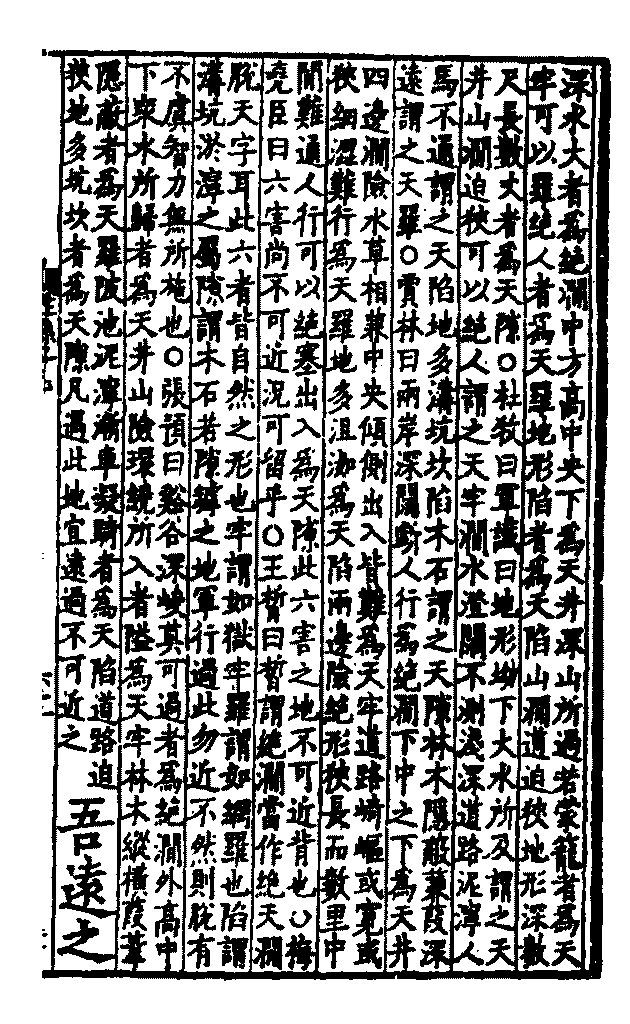 深水大者爲絶澗中方高中央下爲天井深山所過若蒙籠者爲天
牢可以羅絶人者爲天羅地形陷者爲天陷山澗道迫狹地形深數
尺長數丈者爲天隙○杜牧曰軍讖曰地形坳下大水所及謂之天
井山澗迫狹可以絶人謂之天牢澗水澄闊不測淺深道路泥濘人
馬不通謂之天陷地多溝坑坎陷木石謂之天隙林木隱蔽蒹葭深
遠謂之天羅○賈林曰兩岸深闊斷人行爲絶澗下中之下爲天井
四邊澗險水草相兼中央傾側出入皆難爲天牢道路崎嶇或寛或
狹細澀難行爲天羅地多沮洳爲天陷兩邊險絶形狹長而數里中
間難通人行可以絶塞出入爲天隙此六害之地不可近背也○梅
堯臣曰六害尚不可近況可留乎○王晳曰晳謂絶澗當作絶天澗
脫天字耳此六者皆自然之形也牢謂如獄牢羅謂如網羅也陷謂
溝坑淤濘之屬隙謂木石若隙罅之地軍行過此勿近不然則脫有
不虞智力無所施也○張預曰谿谷深峻莫可過者爲絶澗外高中
下衆水所歸者爲天井山險環繞所入者隘爲天牢林木縱橫葭葦
隱蔽者爲天羅陂池泥濘漸車凝騎者爲天陷道路迫
狹地多坑坎者爲天隙凡遇此地宜遠過不可近之
吾遠之